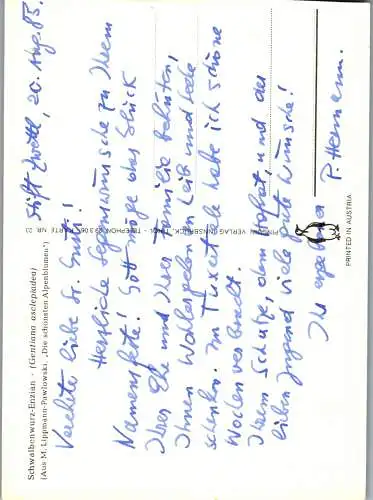 Schwalbenwurz-Enzian - (Gentiana asclepiadea)
(Aus M. Lippmann-Pawlowski, „Die schönsten Alpenblumen.")
Stift Zwettl, 20. Aug. 85.
Verehrte liebe Fr. Susi!
Herzliche Segenswünsche zu Ihrem
Namensfeste! Gott möge das Glück
Ihrer Ehe und Ihrer Familie behüten,
Ihnen Wohlergehen in Leib und Seele
schenken. Im Tuxertale habe ich schöne
Wochen verbracht.
Ihrem Schatze, dem, und der
lieben Jugend viele gute Wünsche!
Ihr ergebener P. Hermann.
PINGUIN VERLAG, INNSBRUCK, TIROL - TELEPHON KARTE NR. 23
PRINTED IN AUSTRIA